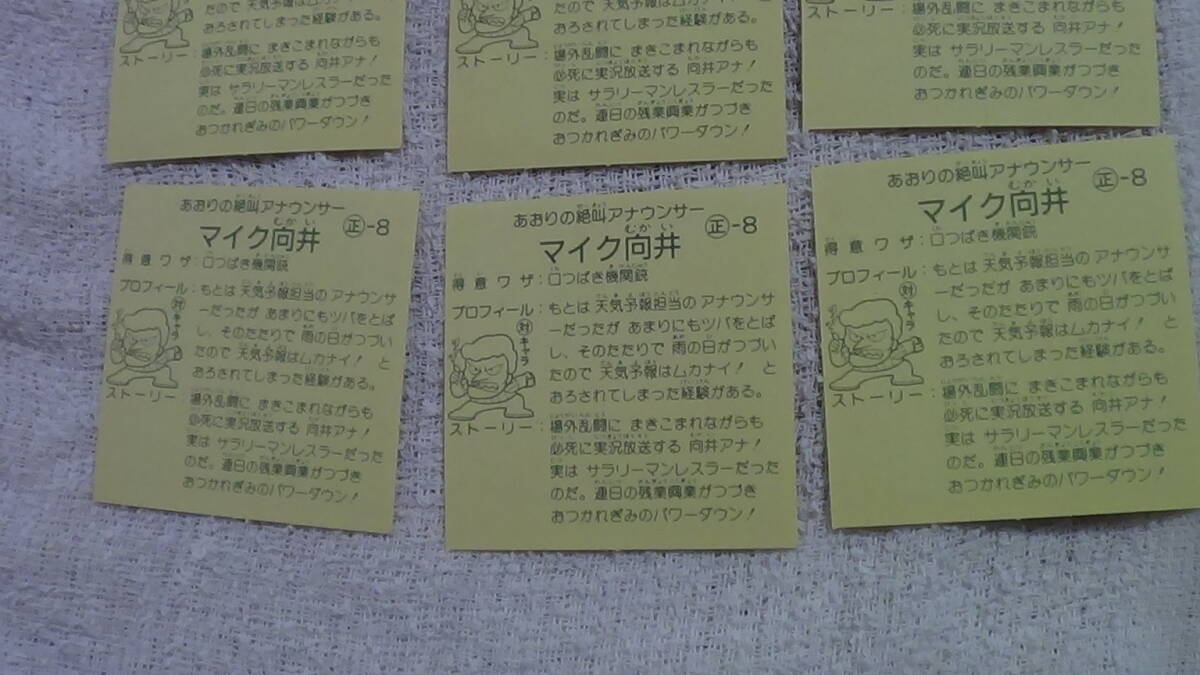 たので 天気予報はムカナイ! と
おろされてしまった経験がある。
ストーリー:場外乱闘に まきこまれながらも
㊙死に実況放送する 向井アナ!
実は サラリーマンレスラーだった
のだ。連日の残業興業がつづき
おつかれぎみのパワーダウン!
たので 天気予報はムカナイ! と
おろされてしまった経験がある。
ストーリー:場外乱闘に まきこまれながらも
㊙死に実況放送する 向井アナ!
実は サラリーマンレスラーだった
のだ。連日の残業興業がつづき
おつかれぎみのパワーダウン!
ストーリー:場外乱闘に まきこまれながらも
㊙死に実況放送する 向井アナ!
実は サラリーマンレスラーだった
のだ。連日の残業興業がつづき
おつかれぎみのパワーダウン!
あおりの絶叫アナウンサー
マイク向井 ㊣-8
得意ワザ:口つばき機関銃
プロフィール:もとは 天気予報担当の アナウンサ
ーだったが あまりにもツバをとば
し、そのたたりで 雨の日がつづい
たので 天気予報はムカナイ! と
おろされてしまった経験がある。
対キャラ
ストーリー:場外乱闘に まきこまれながらも
㊙死に実況放送する 向井アナ!
実は サラリーマンレスラーだった
のだ。連日の残業興業がつづき
おつかれぎみのパワーダウン!
あおりの絶叫アナウンサー
マイク向井 ㊣-8
得意ワザ:口つばき機関銃
プロフィール:もとは 天気予報担当の アナウンサ
ーだったが あまりにもツバをとば
し、そのたたりで 雨の日がつづい
たので 天気予報はムカナイ! と
おろされてしまった経験がある。
対キャラ
ストーリー:場外乱闘に まきこまれながらも
㊙死に実況放送する 向井アナ!
実は サラリーマンレスラーだった
のだ。連日の残業興業がつづき
おつかれぎみのパワーダウン!
あおりの絶叫アナウンサー
マイク向井 ㊣-8
得意ワザ:口つばき機関銃
プロフィール:もとは 天気予報担当の アナウンサ
ーだったが あまりにもツバをとば
し、そのたたりで 雨の日がつづい
たので 天気予報はムカナイ! と
おろされてしまった経験がある。
対キャラ
ストーリー:場外乱闘に まきこまれながらも
㊙死に実況放送する 向井アナ!
実は サラリーマンレスラーだった
のだ。連日の残業興業がつづき
おつかれぎみのパワーダウン!